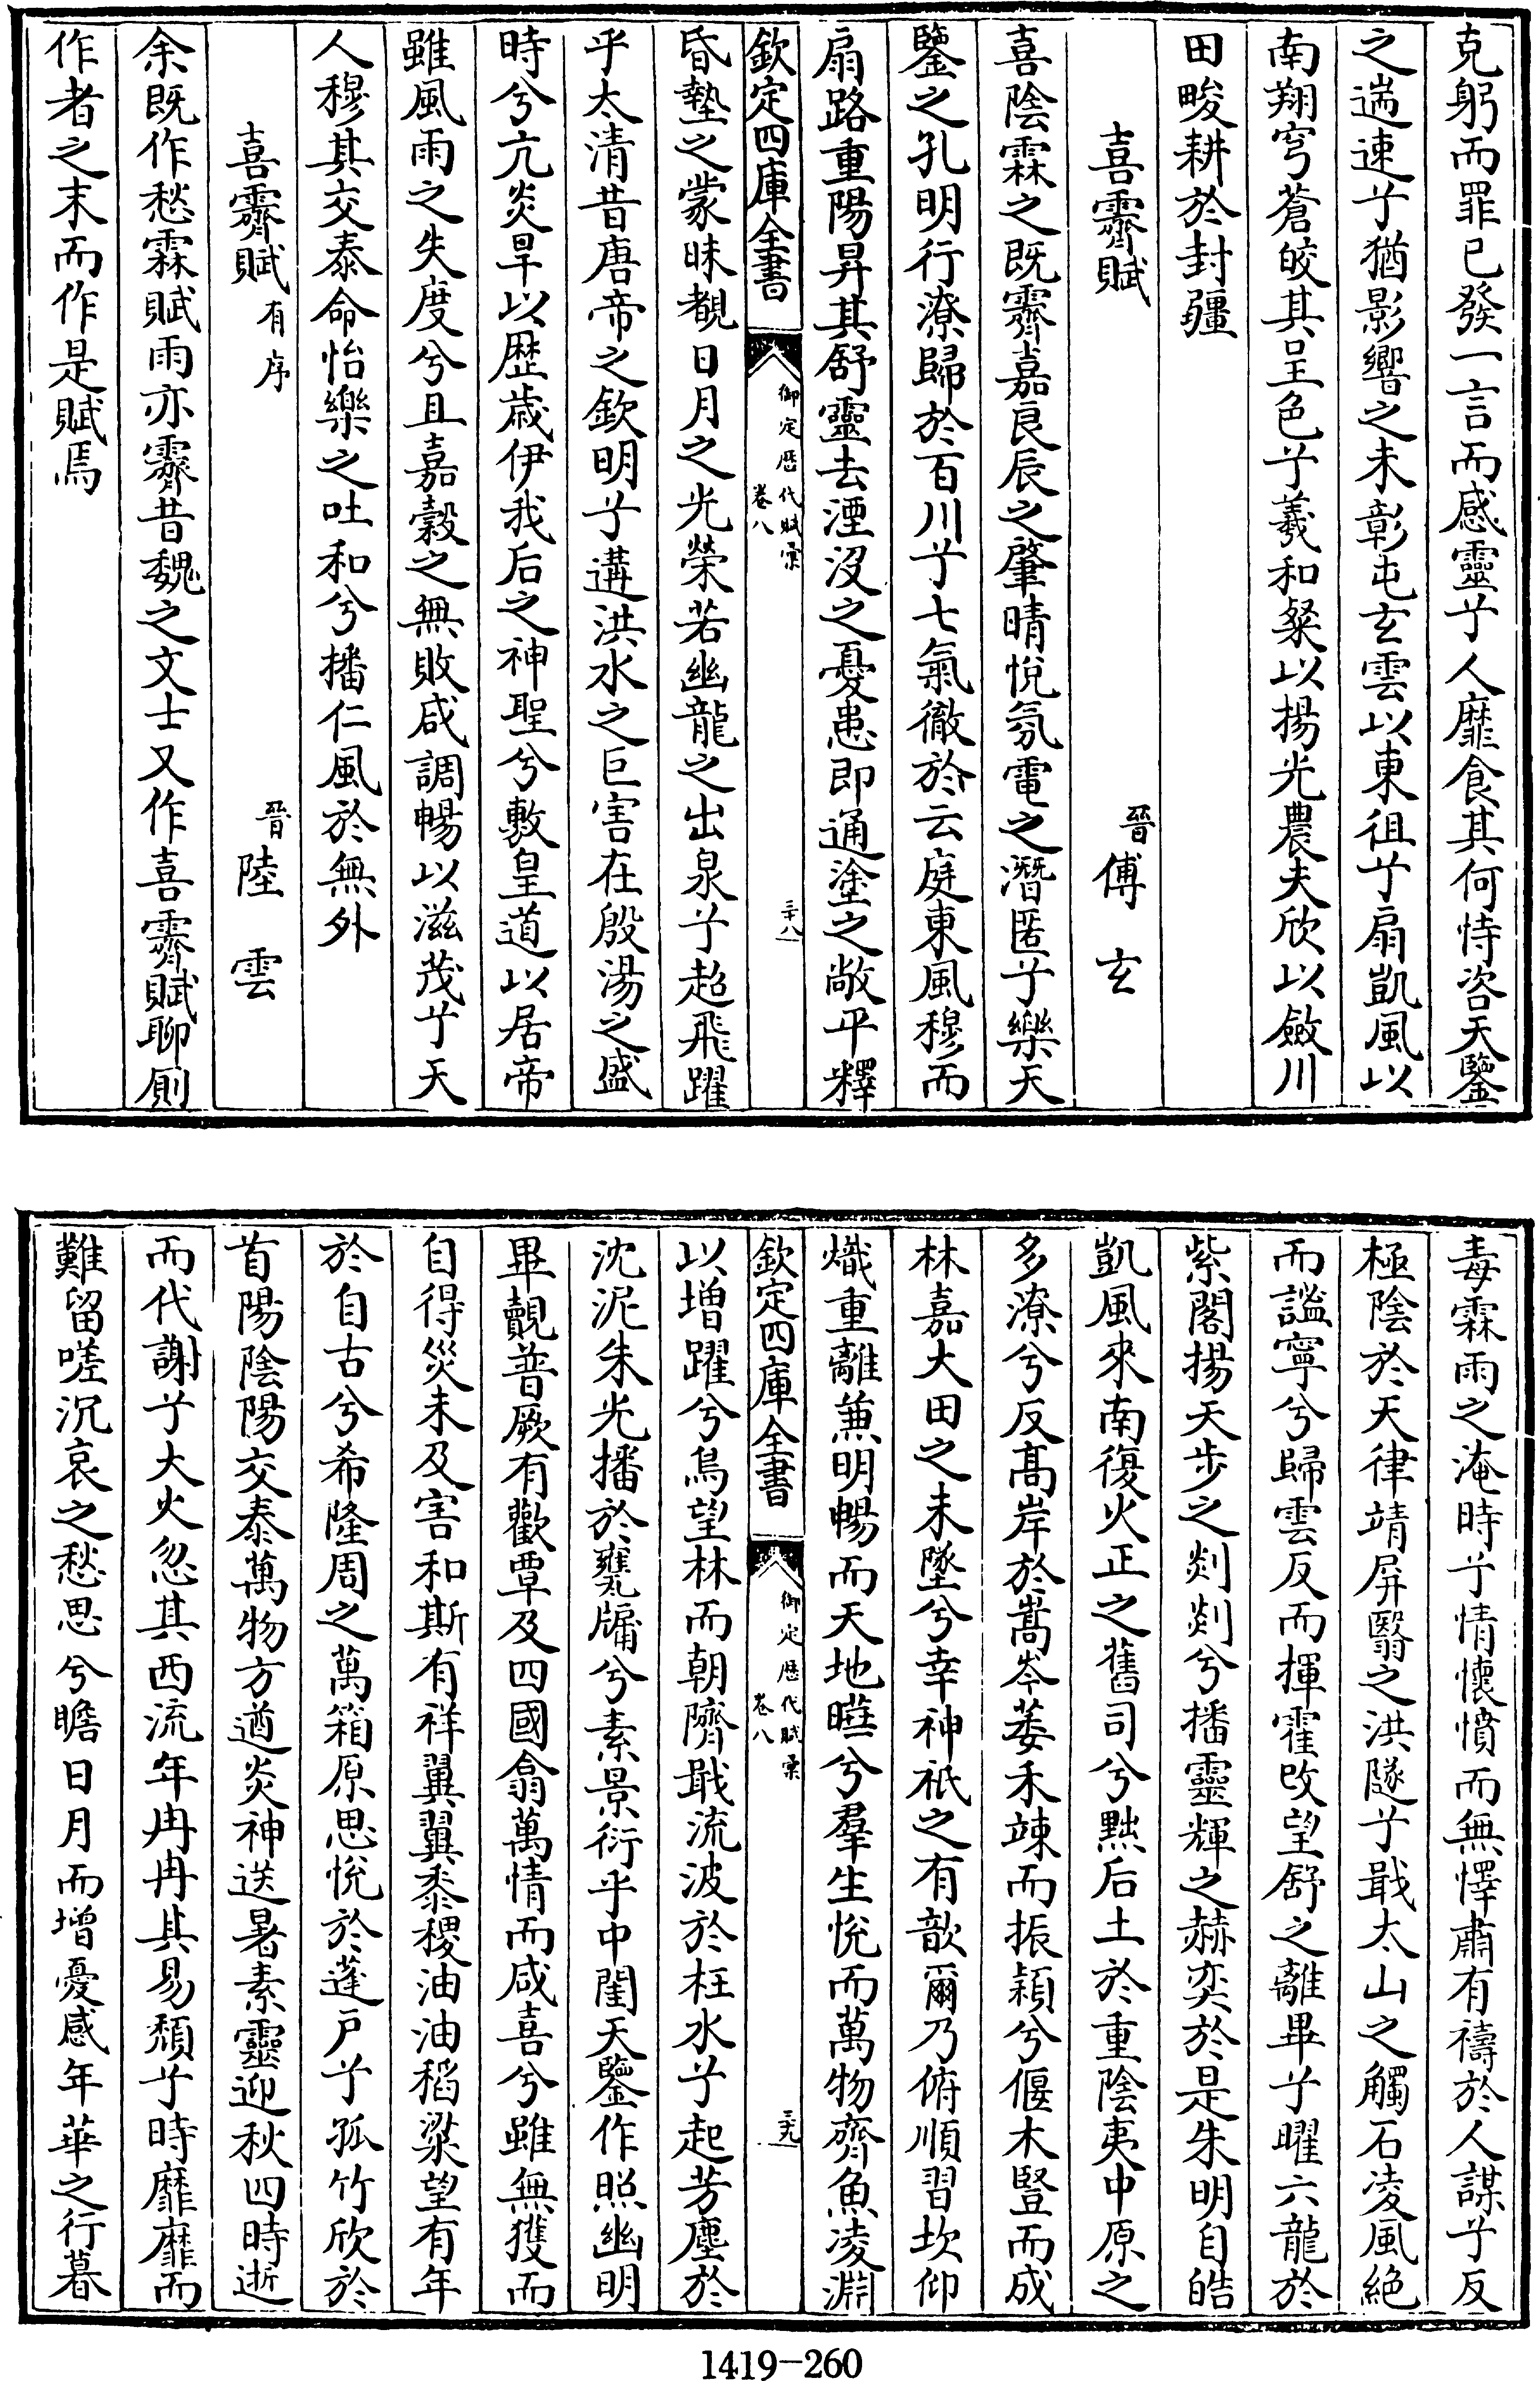 克躬而罪已發一言而感靈兮人靡食其何恃咨天鑒
之遄速兮猶影響之未彰屯玄雲以東徂兮扇凱風以
南翔穹蒼皎其呈色兮羲和粲以揚光農夫欣以斂川
田畯耕於封疆
喜霽賦 晉傅玄
喜陰霖之既霽嘉良辰之肇晴悅氛電之潛匿兮樂天
鑒之孔明行潦歸於百川兮七氣徹於云庭東風穆而
扇路重陽昇其舒靈去湮沒之憂患即通塗之敞平釋
欽定四庫全書 御定歷代賦彙 卷八 三十八
昏墊之蒙昧覩日月之光榮若幽龍之出泉兮超飛躍
乎太清昔唐帝之欽明兮遘洪水之巨害在殷湯之盛
時兮亢炎旱以歷歲伊我后之神聖兮敷皇道以居帝
雖風雨之失度兮且嘉穀之無敗咸調暢以滋茂兮天
人穆其交泰命怡樂之吐和兮播仁風於無外
喜霽賦有序 晉陸雲
余既作愁霖賦雨亦霽昔魏之文士又作喜霽賦聊廁
作者之末而作是賦焉
毒霖雨之淹時兮情懷憤而無懌肅有禱於人謀兮反
極陰於天律靖屏翳之洪隧兮戢太山之觸石凌風絕
而謐寧兮歸雲反而揮霍改望舒之離畢兮曜六龍於
紫閣揚天步之剡剡兮播靈輝之赫奕於是朱明自皓
凱風來南復火正之舊司兮黜后土於重陰夷中原之
多潦兮反高岸於嵩岑萎禾竦而振穎兮偃木豎而成
林嘉大田之未墜兮幸神祇之有歆爾乃俯順習坎仰
熾重離兼明暢而天地曄兮羣生悅而萬物齊魚凌淵
欽定四庫全書 御定歷代賦彙 卷八 三十九
以增躍兮鳥望林而朝隮戢流波於枉水兮起芳塵於
沈泥朱光播於甕牖兮素景衍乎中閨天鑒作照幽明
畢覿普厥有歡覃及四國翕萬情而咸喜兮雖無獲而
自得災未及害和斯有祥翼翼黍稷油油稻粱望有年
於自古兮希隆周之萬箱原思悅於蓬戶兮孤竹欣於
首陽陰陽交泰萬物方遒炎神送暑素靈迎秋四時逝
而代謝兮大火忽其西流年冉冉其易頹兮時靡靡而
難留嗟沉哀之愁思兮瞻日月而增憂感年華之行暮
1419-260